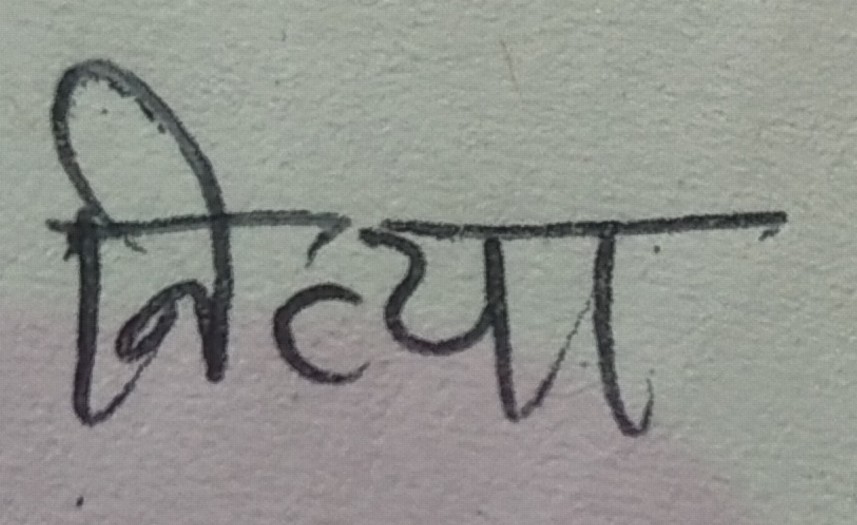 नित्या